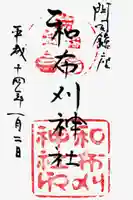 門司鎮座
和布刈神社
平成十四年一月二日
和布刈神社